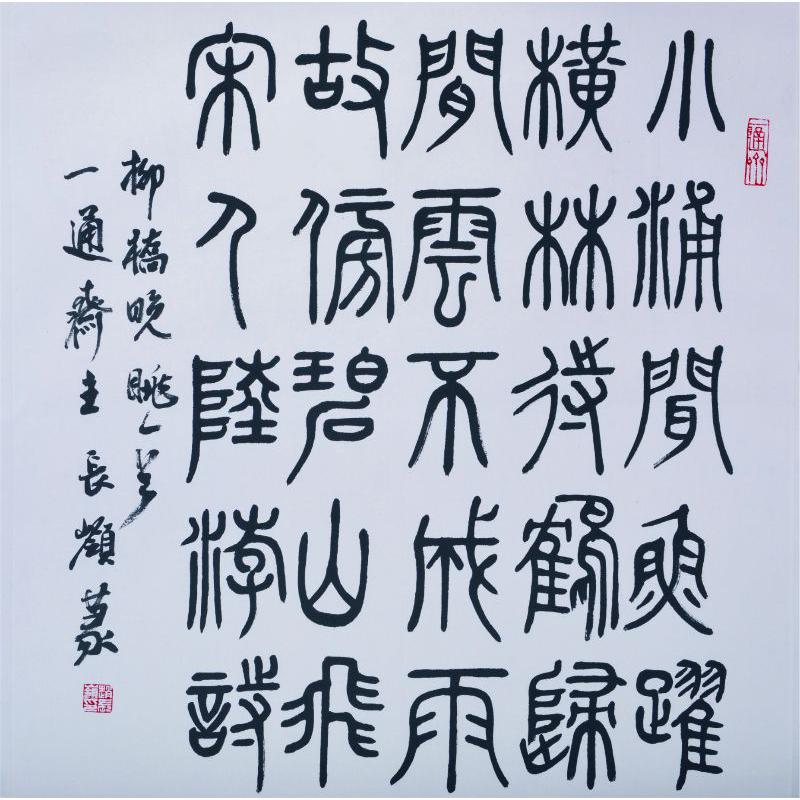 小浦聞魚躍
橫林待鶴歸
閒雲不成雨
故傍碧山飛
宋人陸游詩
柳橋晚眺一首
一通齋主長篆
通州